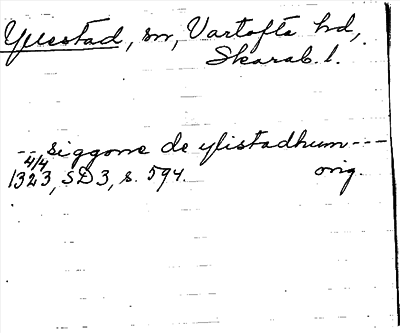 Yllestad, sn, Vartofta hd,
Skarab. l.
-- siggone de ylistadhum ---
4/4
1323, SD 3, s. 594. orig.